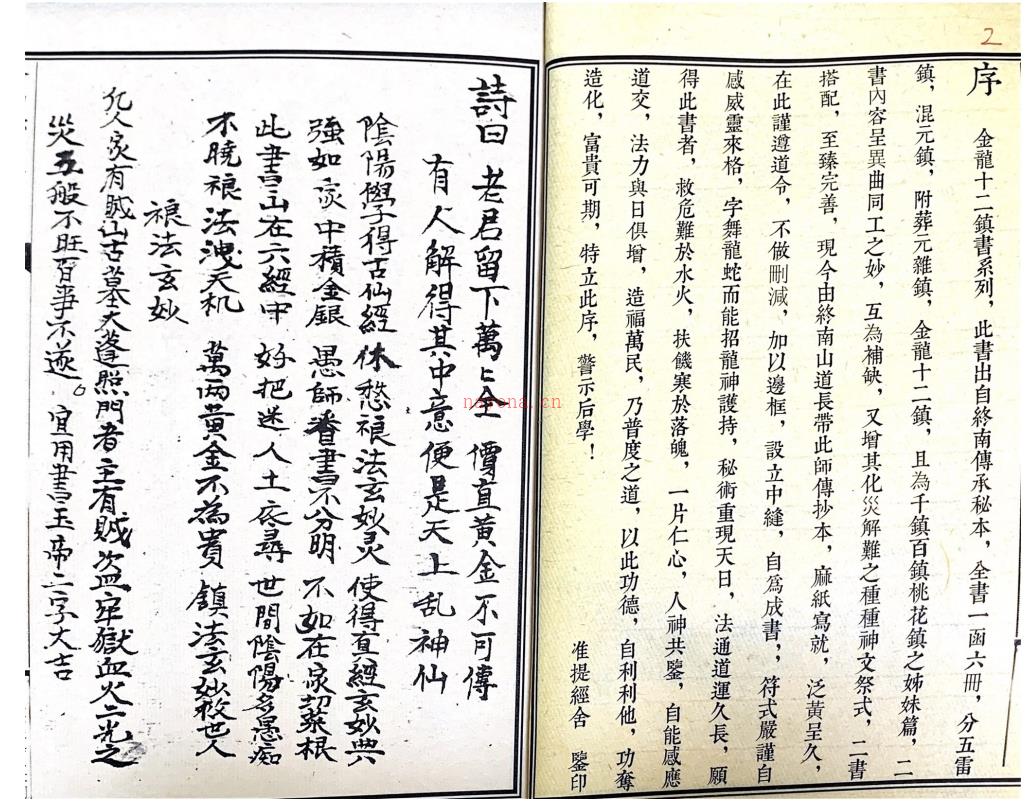 2
序 金龍十二鎮書系列，此書出自終南傳承秘本，全書一函六冊，分五雷
鎮，混元鎮，附葬元雜鎮，金龍十二鎮，且為千鎮百鎮桃花鎮之姊妹篇，二
書內容呈異曲同工之妙，互為補缺，又增其化災解難之種種神文祭式，二書
搭配，至臻完善，現今由終南山道長帶此師傳抄本，麻紙寫就，泛黃呈久，
在此謹遵道令，不做刪減，加以邊框，設立中縫，自爲成書，，符式嚴謹自
感威靈來格，字舞龍蛇而能招龍神護持，秘術重現天日，法通道運久長，願
得此書者，救危難於水火，扶饑寒於落魄，一片仁心，人神共鑒，自能感應
道交，法力與日俱增，造福萬民，乃普度之道，以此功德，自利利他，功奪
造化，富貴可期，特立此序，警示后學！
准提經舍 鑒印
詩曰 老君留下萬上全 價直黃金不可傳
有人解得其中意 便是天上乱神仙
陰陽學子得古仙經 休愁禳法玄妙灵 使得直經玄妙典
強如家中積金銀 愚師看書不分明 不如在家契菜根
此書山在六經中 好把迷人土底尋 世間陰陽多愚痴
不曉禳法洩天机 萬両黃金不為貴 鎮法玄妙救世人
禳法玄妙
凢人家有賊山古墓大逢照門者主有賊盗牢獄血火之光之
災五般不旺百事不遂。宜用書玉帝二字大吉
nayona.cn